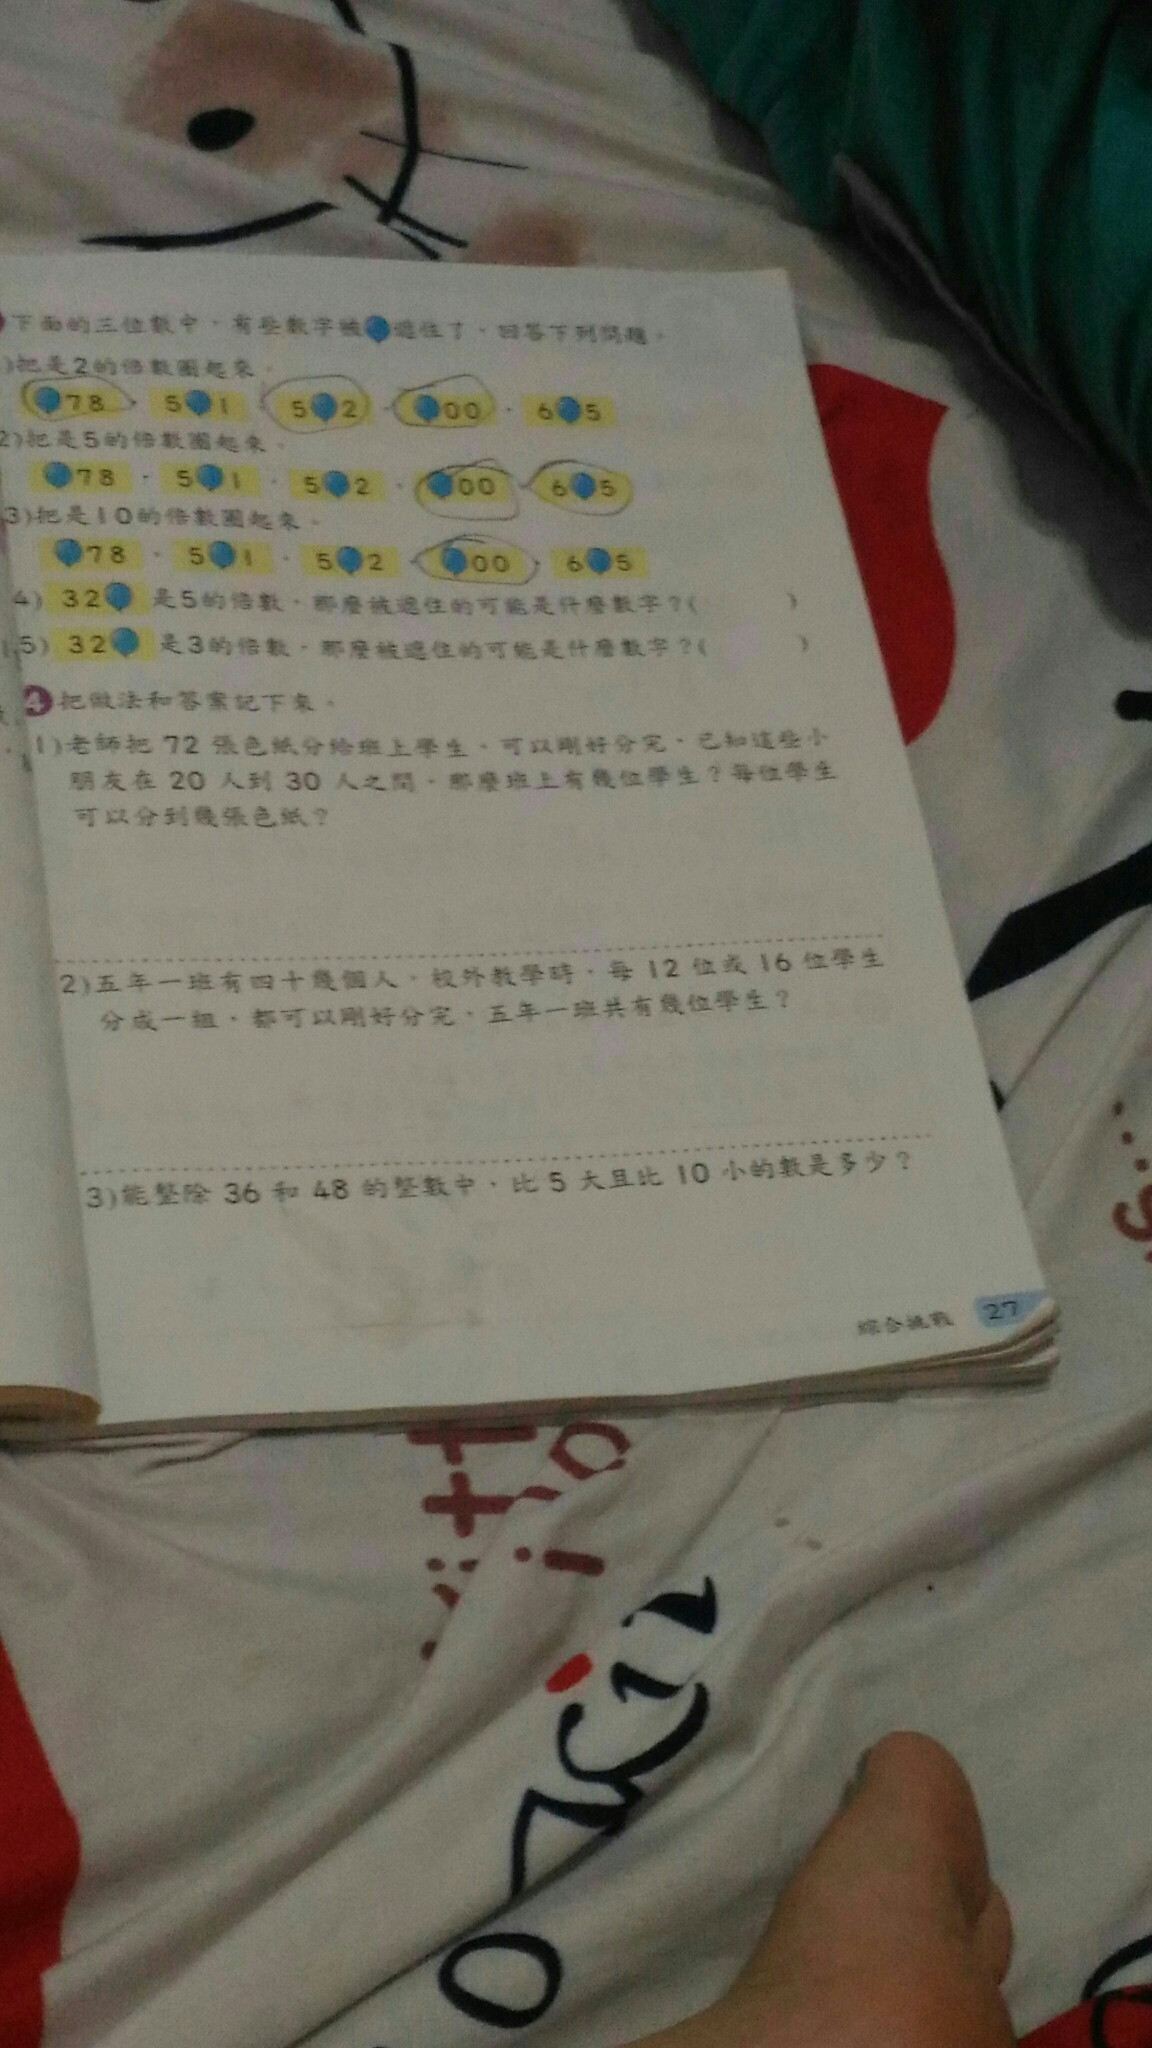 下面的三位數中，有些數字被遮住了，回答下列問題。
)把是2的倍數圈起來。
78、5 1、5 2、 00、6 5
2)把是5的倍數圈起來。
78、5 1、5 2、 00、6 5
3)把是10的倍數圈起來。
78、5 1、5 2、 00、6 5
4) 32 是5的倍數，那麼被遮住的可能是什麼數字？( )
5) 32 是3的倍數，那麼被遮住的可能是什麼數字？( )
4 把做法和答案記下來。
1)老師把 72 張色紙分給班上學生，可以剛好分完，已知這些小
朋友在 20 人到 30 人之間，那麼班上有幾位學生？每位學生
可以分到幾張色紙？
2)五年一班有四十幾個人，校外教學時，每 12 位或 16 位學生
分成一組，都可以剛好分完，五年一班共有幾位學生？
3)能整除 36 和 48 的整數中，比 5 大且比 10 小的數是多少？
綜合挑戰 27